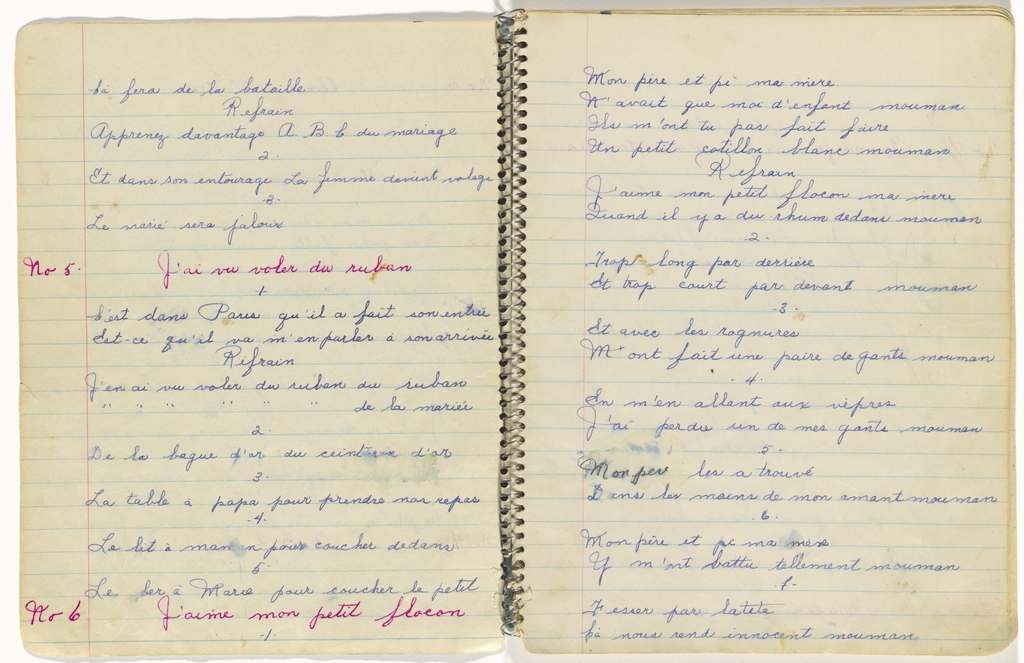 Cà fera de la bataille
Refrain
Apprenez davantage A. B. C du mariage
2.
Et dans son entourage La femme devient volage
3.
Le marié sera jaloux
No 5. J'ai vu voler du ruban
1
C'est dans Paris qu'il a fait son entrée
Est-ce qu'il va m'en parler à son arrivée
Refrain
J'en ai vu voler du ruban du ruban
" " " " " " de la mariée
2.
De la bague d'or du ceinturon d'or
3.
La table à papa pour prendre nos repas
-4.
Le lit à maman pour coucher dedans
5
Le ber à Marie pour coucher le petit
No 6 J'aime mon petit flocon
-1-
Mon père et pi ma mère
N'avait que moi d'enfant mouman
Ils m'ont tu pas fait faire
Un petit cotillon blanc mouman
Refrain
J'aime mon petit flocon ma mère
Quand il y a du rhum dedans mouman
-2-
Trop long par derrière
Et trop court par devant mouman
-3-
Et avec les rognures
M'ont fait une paire de gants mouman
.4.
En m'en allant aux vêpres
J'ai perdu un de mes gants mouman
5-
Mon per les a trouvé
Dans les mains de mon amant mouman
.6.
Mon père et pi ma mère
Y m'ont battu tellement mouman
-7-
Fesser par latête
Cà nous rend innocent mouman